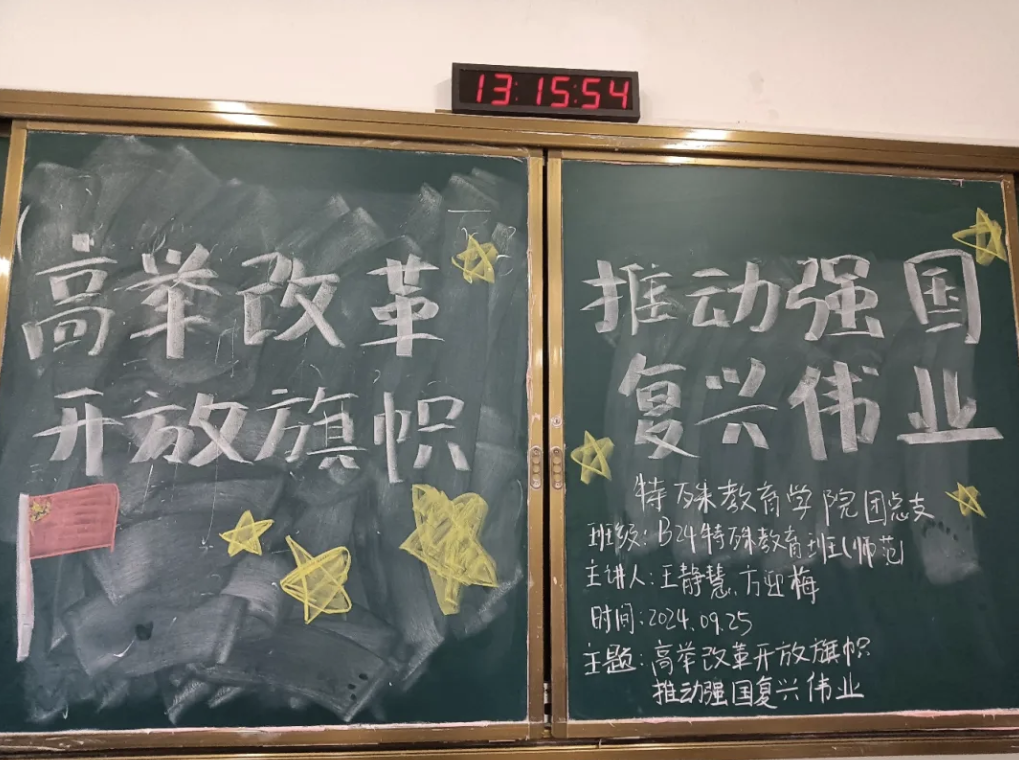 13:15:54
高举改革
开放旗帜
推动强国
复兴伟业
特殊教育学院团总支
班级：B24特殊教育班(师范)
主讲人：王静慧、方迎梅
时间：2024.09.25
主题：高举改革开放旗帜
推动强国复兴伟业